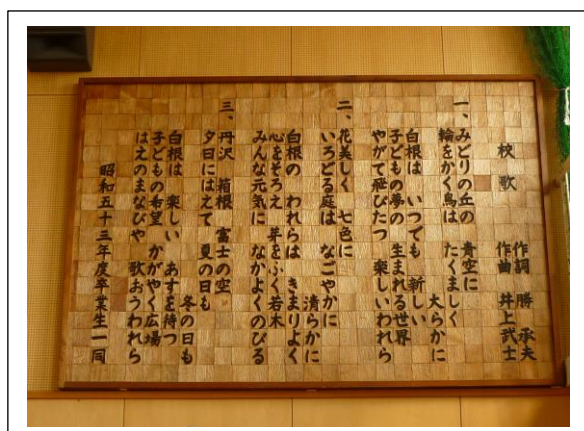 校歌
作詞 勝 承夫
作曲 井上武士
一、みどりの丘の 青空に
輪をかく鳥は たくましく
大らかに
白根は いつでも 新しい
子どもの夢の 生まれる世界
やがて飛びたつ 楽しいわれら
二、花美しく 七色に
いろどる庭は なごやかに
清らかに
白根の われらは きまりよく
心をそろえ 芽をふく若木
みんな元気に なかよくのびる
三、丹沢 箱根 富士の空
夕日にはえて 夏の日も
冬の日も
白根は 楽しい あすを待つ
子どもの希望 かがやく広場
はえのまなびや 歌おうわれら
昭和五十三年度卒業生一同